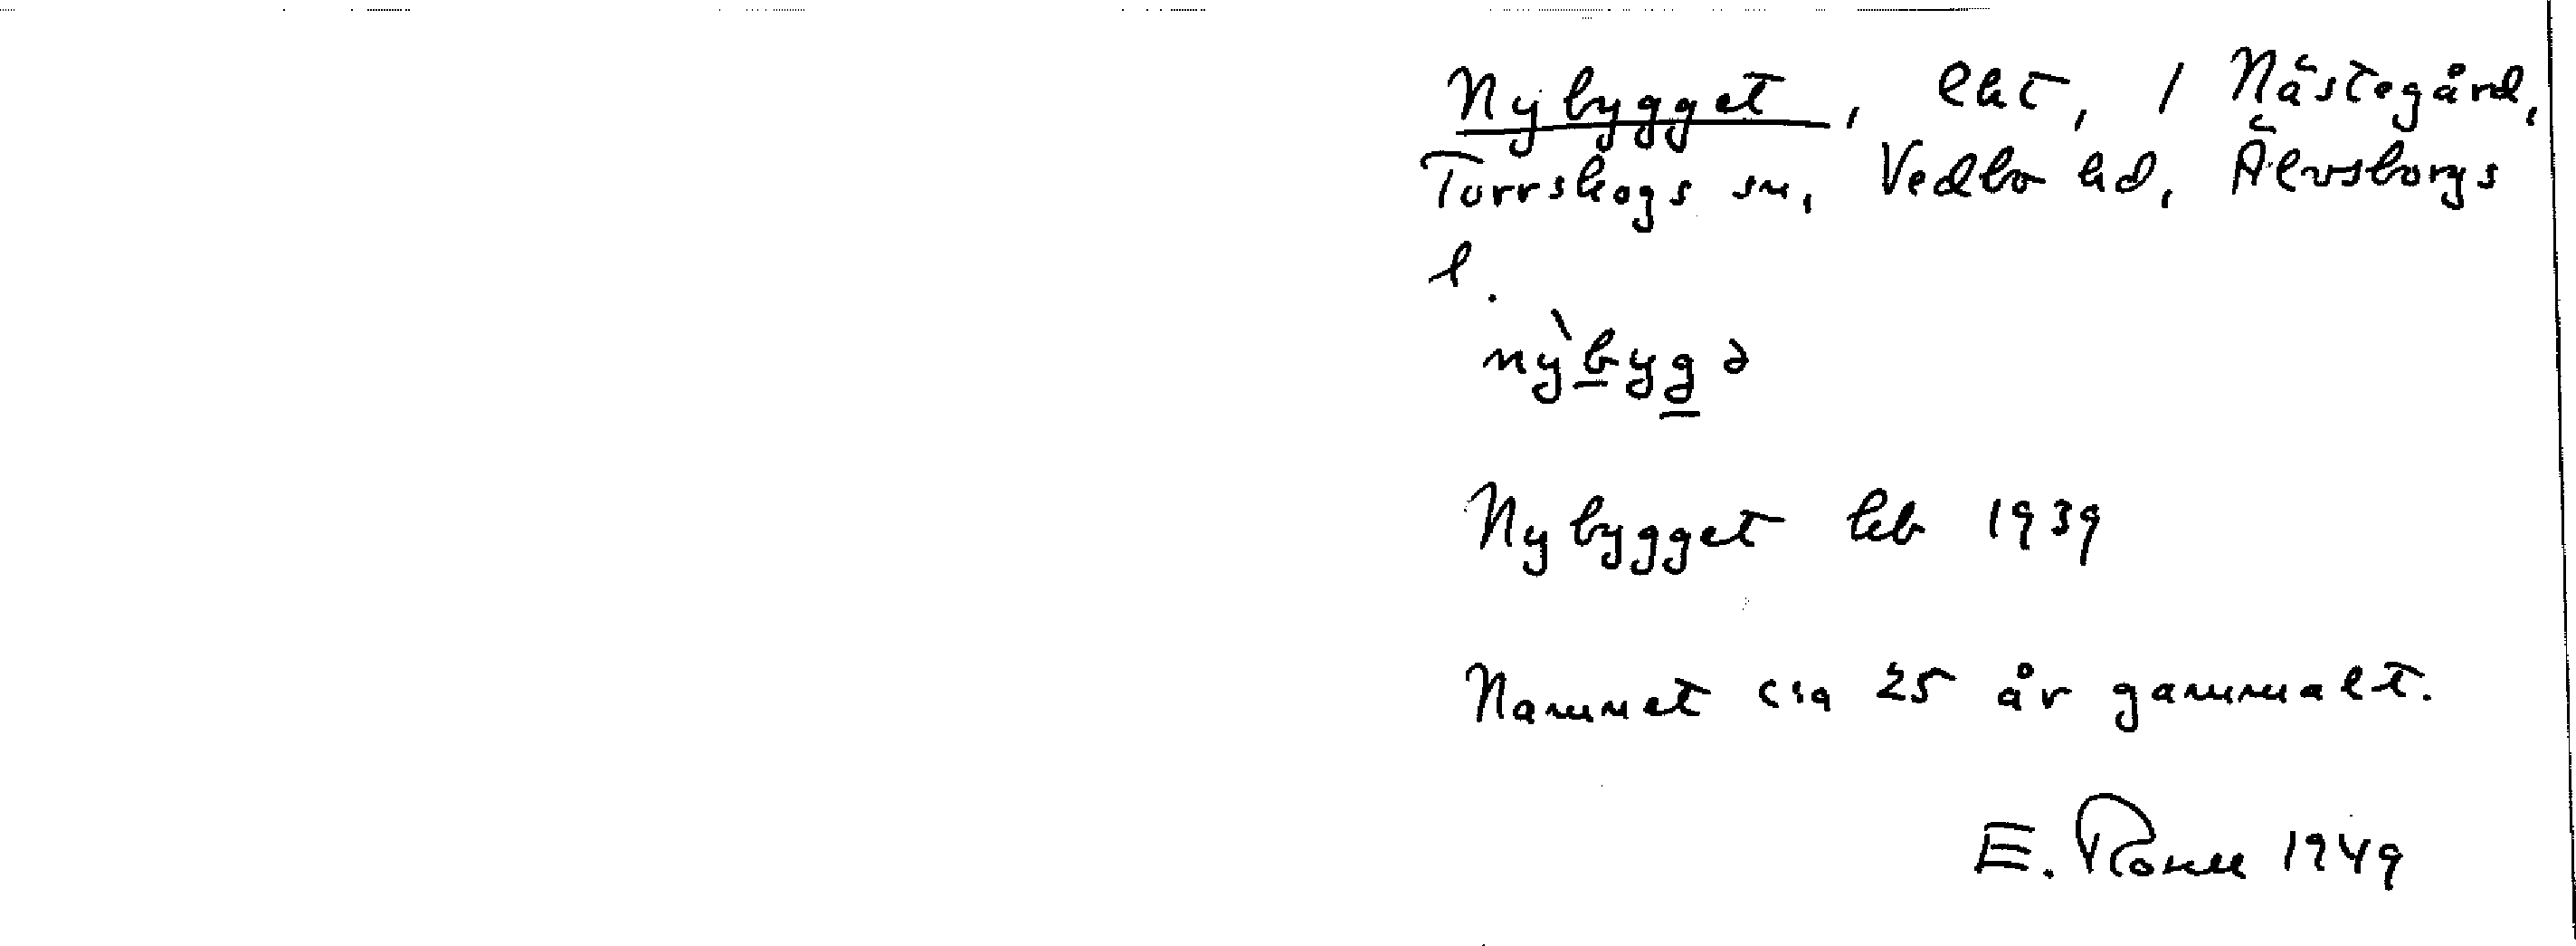 Nybygget, lht, 1 Nästegård,
Torrskogs sn, Vedbo hd, Älvsborgs
l.
nỳbygə
Nybygget kb 1939
Namnet cia 25 år gammalt.
E. 1949